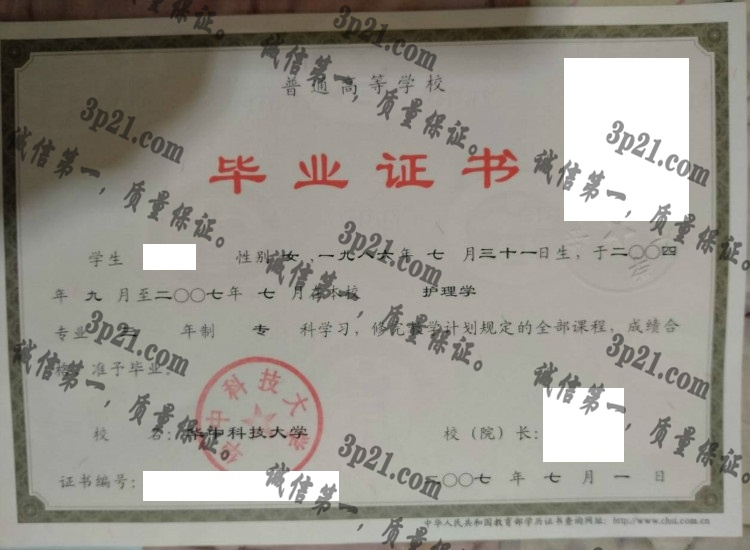 普通高等学校
毕业证书
学生 性别 女,一九八六年 七 月三十一日生,于二〇〇四
年 九 月至二〇〇七年 七 月在本校 护理学
专业 三 年制 专 科学习,修完教学计划规定的全部课程,成绩合
格,准予毕业。
校 名:华中科技大学
校(院)长:
证书编号:
二〇〇七 年 七 月 一 日
中华人民共和国教育部学历证书查询网址:http://www.chsi.com.cn
华中科技大学
3p21.com
诚信第一,质量保证。
3p21.com
诚信第一,质量保证。
3p21.com
诚信第一,质量保证。
3p21.com
诚信第一,质量保证。
3p21.com
诚信第一,质量保证。
3p21.com
诚信第一,质量保证。
3p21.com
诚信第一,质量保证。
3p21.com
诚信第一,质量保证。